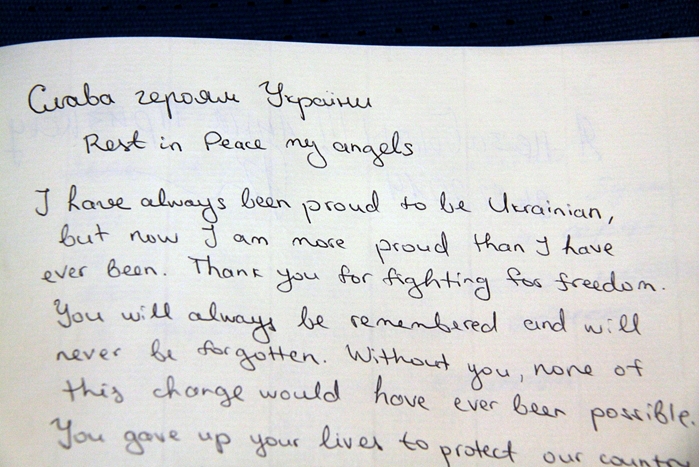 Слава героям України
Rest in Peace my angels
I have always been proud to be Ukrainian,
but now I am more proud than I have
ever been. Thank you for fighting for freedom.
You will always be remembered and will
never be forgotten. Without you, none of
this change would have ever been possible.
You gave up your lives to protect our country